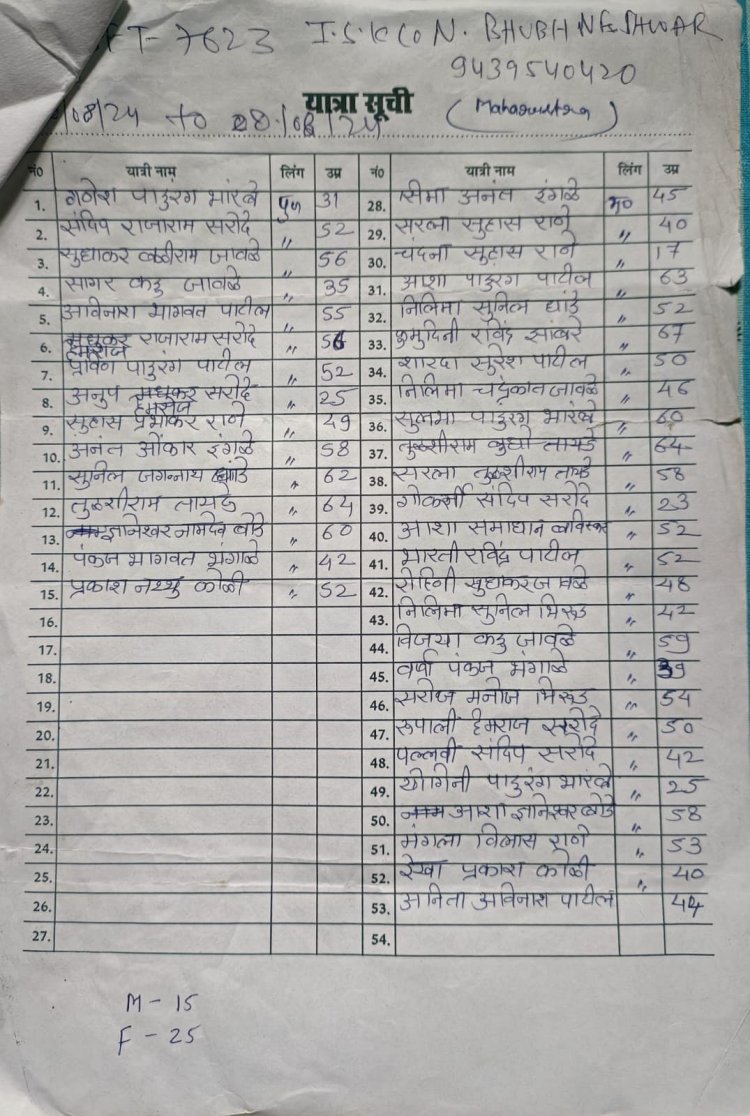 FT-7623 I.S.K.CON. BHUBHNESHWAR
9439540420
यात्रा सूची
/08/24 to 08/08/24 (Maharashtra)
नं० यात्री नाम लिंग उम्र नं० यात्री नाम लिंग उम्र
1. गणेश पाडुरंग भारंबे पुरुष 31 28. सिमा अनंत इंगळे 45
2. संदिप राजाराम सरोदे " 52 29. सरला सुहास राणे " 40
3. सुधाकर बळीराम जावळे " 56 30. चंदना सुहास राणे " 17
4. सागर कडु जावळे " 35 31. आशा पाडुरंग पाटील " 63
5. अविनाश भागवत पाटील " 55 32. निलिमा सुनिल धांडे " 52
6. हेमराज राजाराम सरोदे " 56 33. कुमुदिनी रविंद्र झांबरे " 67
7. प्रविण पाडुरंग पाटील " 52 34. शारदा सुरेश पाटील " 50
8. अनुप हेमराज सरोदे " 25 35. निलिमा चंद्रकांत जावळे " 46
9. सुहास प्रभाकर राणे " 49 36. सुलभा पाडुरंग भारंबे " 60
10. अनंत ओंकार इंगळे " 58 37. तुळशीराम बुधो तायडे " 64
11. सुनिल जगन्नाथ धांडे " 62 38. सरला तुळशीराम तायडे " 58
12. तुळशीराम तायडे " 64 39. गोकर्णी संदिप सरोदे " 23
13. ज्ञानेश्वर नामदेव बोंडे " 60 40. आशा समाधान बाविस्कर " 52
14. पंकज भागवत भंगाळे " 42 41. भारती रविंद्र पाटील " 52
15. प्रकाश नथ्थु कोळी " 52 42. रोहिणी सुधाकर जावळे " 48
16. 43. निलिमा सुनिल भिरुड " 42
17. 44. विजया कडु जावळे " 59
18. 45. वर्षा पंकज भंगाळे " 39
19. 46. सरोज मनोज भिरुड " 54
20. 47. रुपाली हेमराज सरोदे " 50
21. 48. पल्लवी संदिप सरोदे " 42
22. 49. योगिनी पाडुरंग भारंबे " 25
23. 50. आशा ज्ञानेश्वर बोंडे " 58
24. 51. मंगला विलास राणे " 53
25. 52. रेखा प्रकाश कोळी " 40
26. 53. अनिता अविनाश पाटील 44
27. 54.
M - 15
F - 25